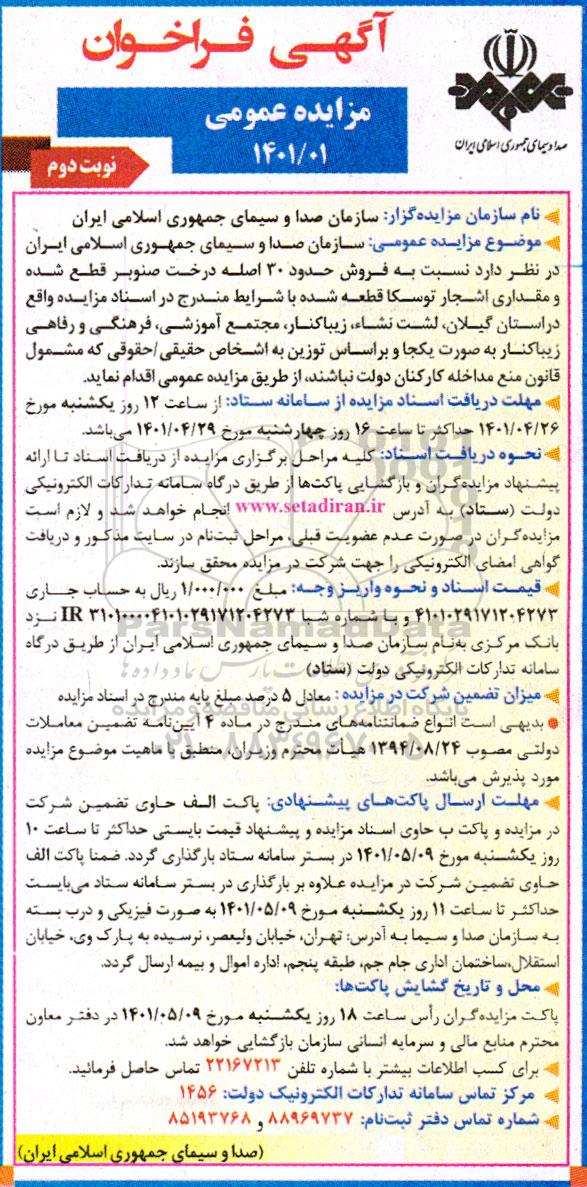 آگهی فراخوان
مزایده عمومی
۱۴۰۱/۰۱
نوبت دوم
صدا و سیمای جمهوری اسلامی ایران
نام سازمان مزایده‌گزار: سازمان صدا و سیمای جمهوری اسلامی ایران
موضوع مزایده عمومی: سازمان صدا و سیمای جمهوری اسلامی ایران
در نظر دارد نسبت به فروش حدود ۳۰ اصله درخت صنوبر قطع شده
و مقداری اشجار توسکا قطعه شده با شرایط مندرج در اسناد مزایده واقع
در استان گیلان، لشت نشاء، زیباکنار، مجتمع آموزشی، فرهنگی و رفاهی
زیباکنار به صورت یکجا و براساس توزین به اشخاص حقیقی/حقوقی که مشمول
قانون منع مداخله کارکنان دولت نباشند، از طریق مزایده عمومی اقدام نماید.
مهلت دریافت اسناد مزایده از سامانه ستاد: از ساعت ۱۲ روز یکشنبه مورخ
۱۴۰۱/۰۴/۲۶ حداکثر تا ساعت ۱۶ روز چهارشنبه مورخ ۱۴۰۱/۰۴/۲۹ می‌باشد.
نحوه دریافت اسناد: کلیه مراحل برگزاری مزایده از دریافت اسناد تا ارائه
پیشنهاد مزایده‌گران و بازگشایی پاکت‌ها از طریق درگاه سامانه تدارکات الکترونیکی
دولت (ستاد) به آدرس www.setadiran.ir انجام خواهد شد و لازم است
مزایده‌گران در صورت عدم عضویت قبلی، مراحل ثبت‌نام در سایت مذکور و دریافت
گواهی امضای الکترونیکی را جهت شرکت در مزایده محقق سازند.
قیمت اسناد و نحوه واریز وجه: مبلغ ۱/۰۰۰/۰۰۰ ریال به حساب جاری
۴۱۰۱۰۲۹۱۷۱۲۰۴۲۷۳ و با شماره شبا IR ۳۱۰۱۰۰۰۰۴۱۰۱۰۲۹۱۷۱۲۰۴۲۷۳ نزد
بانک مرکزی به‌نام سازمان صدا و سیمای جمهوری اسلامی ایران از طریق درگاه
سامانه تدارکات الکترونیکی دولت (ستاد)
میزان تضمین شرکت در مزایده: معادل ۵ درصد مبلغ پایه مندرج در اسناد مزایده
بدیهی است انواع ضمانتنامه‌های مندرج در ماده ۴ آیین‌نامه تضمین معاملات
دولتی مصوب ۱۳۹۴/۰۸/۲۴ هیأت محترم وزیران، منطبق با ماهیت موضوع مزایده
مورد پذیرش می‌باشد.
مهلت ارسال پاکت‌های پیشنهادی: پاکت الف حاوی تضمین شرکت
در مزایده و پاکت ب حاوی اسناد مزایده و پیشنهاد قیمت بایستی حداکثر تا ساعت ۱۰
روز یکشنبه مورخ ۱۴۰۱/۰۵/۰۹ در بستر سامانه ستاد بارگذاری گردد. ضمنا پاکت الف
حاوی تضمین شرکت در مزایده علاوه بر بارگذاری در بستر سامانه ستاد می‌بایست
حداکثر تا ساعت ۱۱ روز یکشنبه مورخ ۱۴۰۱/۰۵/۰۹ به صورت فیزیکی و درب بسته
به سازمان صدا و سیما به آدرس: تهران، خیابان ولیعصر، نرسیده به پارک وی، خیابان
استقلال،ساختمان اداری جام جم، طبقه پنجم، اداره اموال و بیمه ارسال گردد.
محل و تاریخ گشایش پاکت‌ها:
پاکت مزایده‌گران رأس ساعت ۱۸ روز یکشنبه مورخ ۱۴۰۱/۰۵/۰۹ در دفتر معاون
محترم منابع مالی و سرمایه انسانی سازمان بازگشایی خواهد شد.
برای کسب اطلاعات بیشتر با شماره تلفن ۲۲۱۶۷۲۱۳ تماس حاصل فرمائید.
مرکز تماس سامانه تدارکات الکترونیک دولت: ۱۴۵۶
شماره تماس دفتر ثبت‌نام: ۸۸۹۶۹۷۳۷ و ۸۵۱۹۳۷۶۸
(صدا و سیمای جمهوری اسلامی ایران)
ParsNamadData
پایگاه اطلاع رسانی مناقصه و مزایده